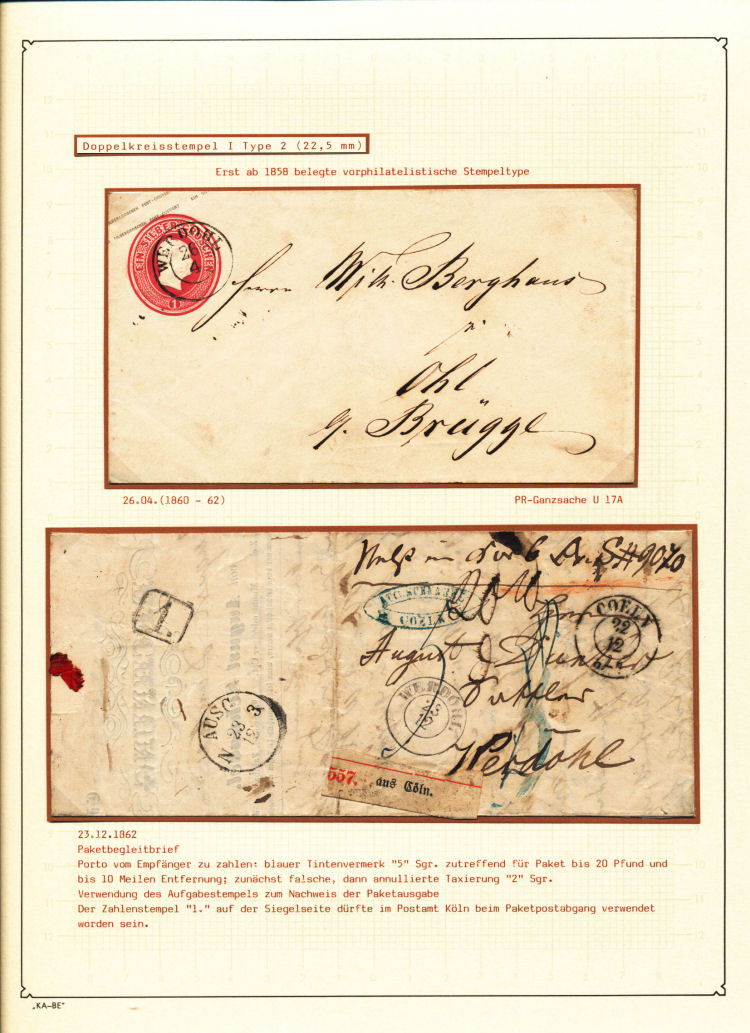 Doppelkreisstempel I Type 2 (22,5 mm)
Erst ab 1858 belegte vorphilatelistische Stempeltype
EIN SILBERGROSCHEN
1
WERDOHL
26
4
Herrn Wilh. Berghaus
in
Ohl
g. Brügge
26.04.(1860 - 62)
PR-Ganzsache U 17A
1.
COELN
COELN
22
12
August
Sattler
Werdohl
WERDOHL
23
12
AUSG
N. 3
23
12
557.
aus Cöln.
23.12.1862
Paketbegleitbrief
Porto vom Empfänger zu zahlen: blauer Tintenvermerk "5" Sgr. zutreffend für Paket bis 20 Pfund und
bis 10 Meilen Entfernung; zunächst falsche, dann annullierte Taxierung "2" Sgr.
Verwendung des Aufgabestempels zum Nachweis der Paketausgabe
Der Zahlenstempel "1." auf der Siegelseite dürfte im Postamt Köln beim Paketpostabgang verwendet
worden sein.
„KA-BE"